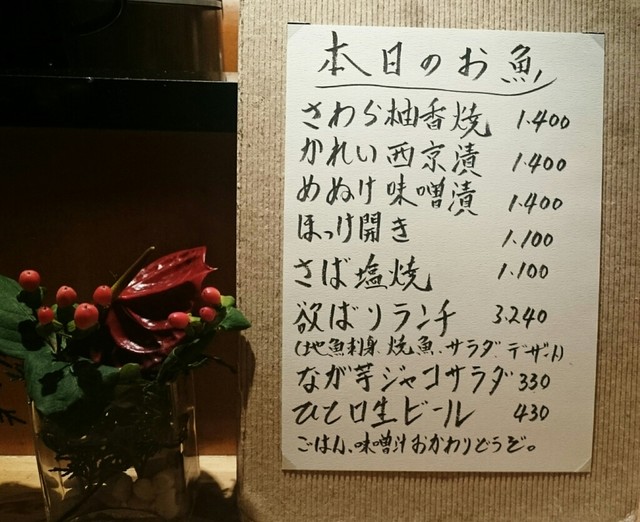 本日のお魚
さわら柚香焼 1.400
かれい西京漬 1.400
めぬけ味噌漬 1.400
ほっけ開き 1.100
さば塩焼 1.100
欲ばりランチ 3.240
(地魚刺身、焼魚、サラダ、デザート)
なが芋ジャコサラダ 330
ひと口生ビール 430
ごはん、味噌汁おかわりどうぞ。